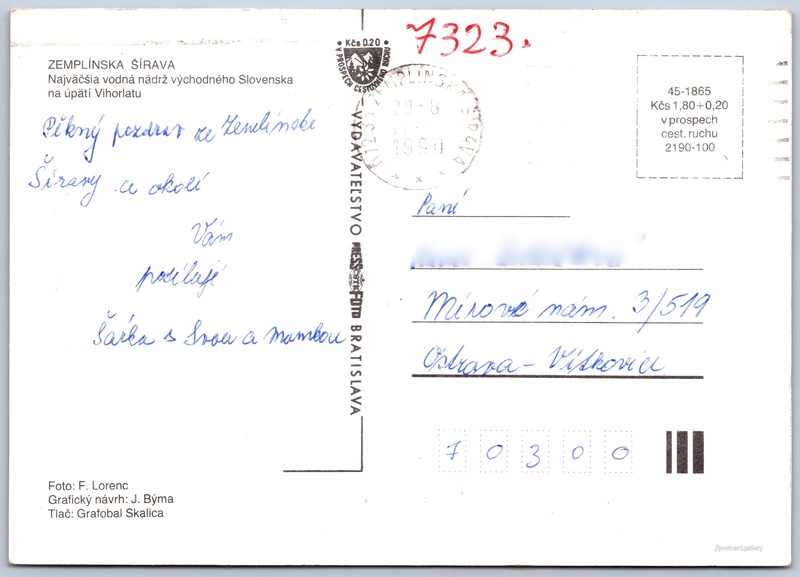 7323.
Kčs 0.20
V PROSPECH CESTOVNÉHO RUCHU
ZEMPLÍNSKA ŠÍRAVA
Najväčšia vodná nádrž východného Slovenska
na úpätí Vihorlatu
ZEMPLÍNSKA ŠÍRAVA
1990
45-1865
Kčs 1,80+0,20
v prospech
cest. ruchu
2190-100
Pěkný pozdrav ze Zemlínské
Šíravy a okolí
Vám
posílají
Šárka s Ivou a mamkou
VYDAVATEĽSTVO PRESSFOTO BRATISLAVA
Paní
Mírové nám. 3/519
Ostrava - Vítkovice
70300
Foto: F. Lorenc
Grafický návrh: J. Býma
Tlač: Grafobal Skalica